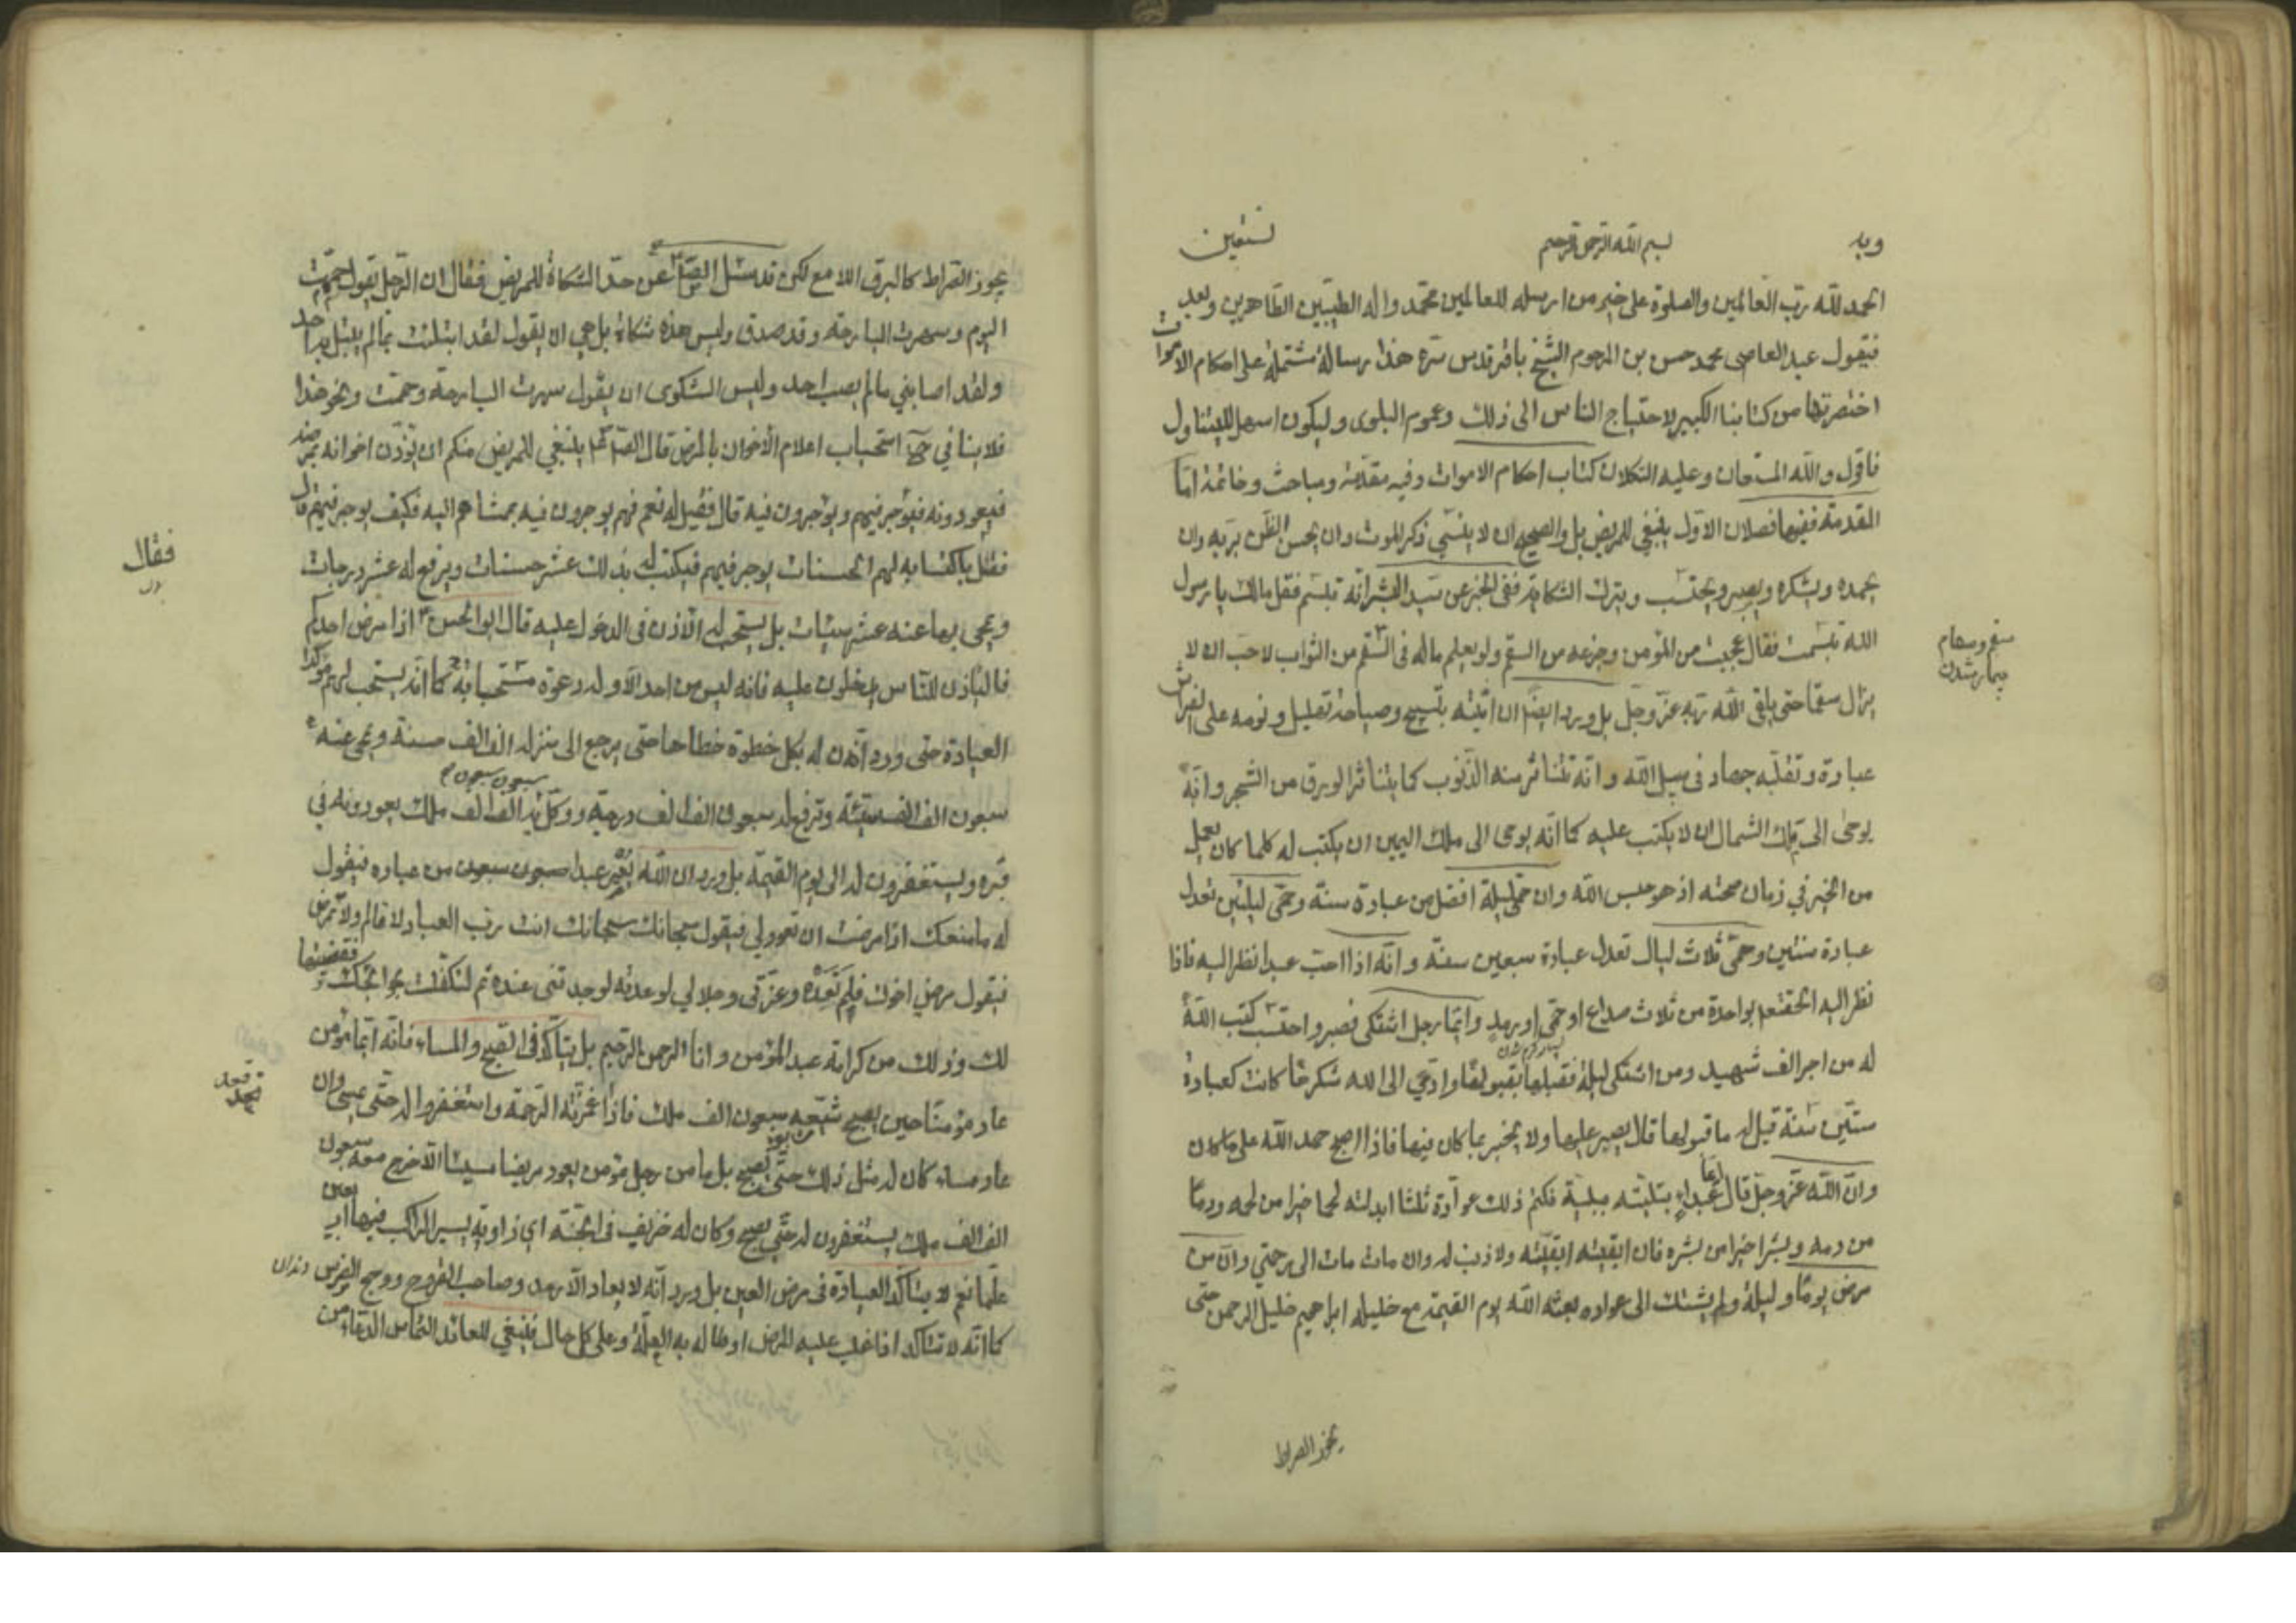 وبه بسم الله الرحمن الرحيم نستعين
الحمد لله رب العالمين والصلوة على خير من ارسله للعالمين محمد واله الطيبين الطاهرين وبعد
فيقول عبد العاصى محمد حسن بن المرحوم الشيخ باقر قدس سره هذا رسالة مشتملة على احكام الاموات
اختصرتها من كتابنا الكبير لاحتياج الناس الى ذلك وعموم البلوى وليكون اسهل للتناول
فاقول والله المستعان وعليه التكلان كتاب احكام الاموات وفيه مقدمة ومباحث وخاتمة اما
المقدمة ففيها فصلان الاول ينبغي للمريض بل والصحيح ان لا ينسى ذكر الموت وان يحسن الظن بربه وان
يحمده ويشكره ويصبر ويحتسب ويترك الشكاية ففى الخبر عن سيد البشر انه تبسم فقل مالك يا رسول
الله تبسمت فقال عجبت من المؤمن وجزعه من السقم ولو يعلم ماله فى السقم من الثواب لاحب ان لا
يزال سقيما حتى يلقى الله ربه عز وجل بل ورد ايضا ان انينه تسبيح وصياحه تهليل ونومه على الفراش
عبادة وتقلبه جهاد فى سبيل الله وانه تتناثر منه الذنوب كما يتناثر الورق من الشجر وانه
يوحى الى ملك الشمال ان لا يكتب عليه كما انه يوحى الى ملك اليمين ان يكتب له كلما كان يعمل
من الخير في زمان صحته اذ هو حبس الله وان حمى ليلة افضل من عبادة سنة وحمى ليلتين تعدل
عبادة سنتين وحمى ثلاث ليال تعدل عبادة سبعين سنة وانه اذا احب عبدا نظر اليه فاذا
نظر اليه اتحفه بواحدة من ثلاث صداع او حمى او رمد وايما رجل اشتكى فصبر واحتسب كتب الله
له من اجر الف شهيد ومن اشتكى ليلة فقبلها بقبولها وادى الى الله شكرها كانت كعبادة
ستين سنة قيل له ما قبولها قال يصبر عليها ولا يخبر بما كان فيها فاذا اصبح حمد الله على ما كان
وان الله عز وجل قال ايما عبد ابتليته ببلية فكتم ذلك عواده ثلثا ابدلته لحما خيرا من لحمه ودما
من دمه وبشرا خيرا من بشره فان ابقيته ابقيته ولا ذنب له وان مات مات الى رحمتي وان من
مرض يوما وليلة ولم يشتك الى عواده بعثه الله يوم القيمة مع خليله ابراهيم خليل الرحمن حتى
يجوز الصراط
سقم وسقام
بيمار شدن
يجوز الصراط كالبرق اللامع لكن قد سئل الصادق عن حد الشكاة للمريض فقال ان الرجل يقول حممت
اليوم وسهرت البارحة وقد صدق وليس هذه شكاة بل هي ان يقول لقد ابتليت بمالم يبتل به احد
ولقد اصابني مالم يصب احد وليس الشكوى ان يقول سهرت البارحة وحممت ونحو هذا
فلا ينافي استحباب اعلام الاخوان بالمرض قال الصادق ينبغي للمريض منكم ان يؤذن اخوانه بمرضه
فيعودونه فيؤجر فيهم ويؤجرون فيه قال فقيل له نعم فهم يوجرون فيه بممشاهم اليه فكيف يوجر فيهم قال
فقال باكتسابه لهم الحسنات يوجر فيهم فيكتب له بذلك عشر حسنات ويرفع له عشر درجات
ويمحى بها عنه عشر سيئات بل يستحب له الاذن فى الدخول عليه قال ابو الحسن اذا مرض احدكم
فاليأذن للناس يدخلون عليه فانه ليس من احد الا وله دعوة مستجابة كما انه يستحب لهم مؤكدا
العيادة حتى ورد ان له بكل خطوة خطاها حتى يرجع الى منزله الف الف حسنة ويمحى عنه
سبعون الف الف سيئة وترفع له سبعون الف الف درجة ووكل به الف الف ملك يعودونه في
قبره ويستغفرون له الى يوم القيمة بل ورد ان الله يعير عبدا من عباده فيقول
له ما منعك اذا مرضت ان تعودني فيقول سبحانك سبحانك انت رب العباد لا تالم ولا تمرض
فيقول مرض اخوك فلم تعده وعزتى وجلالي لوعدته لوجدتنى عنده ثم لتكفلت بحوائجك فقضيتها
لك وذلك من كرامة عبد المؤمن وانا الرحمن الرحيم بل يتاكد فى الصبح والمساء فانه ايما مؤمن
عاد مؤمنا حين يصبح شيعه سبعون الف ملك فاذا غمرته الرحمة واستغفروا له حتى يمسي وان
عاد مساء كان له مثل ذلك حتى يصبح بل ما من رجل مؤمن يعود مريضا مسيئا الا خرج معه سبعون
الف الف ملك يستغفرون له حتى يصبح وكان له خريف فى الجنة اي زاوية يسير الراكب فيها اربعين
عاما نعم لا يتاكد العيادة فى مرض العين بل ورد انه لا يعاد الارمد وصاحب القروح ووجع الضرس
كما انه لا تتاكد اذا غلب عليه المرض او طال به العلة وعلى كل حال فينبغي للعائد التماس الدعاء من
فقال
دندان